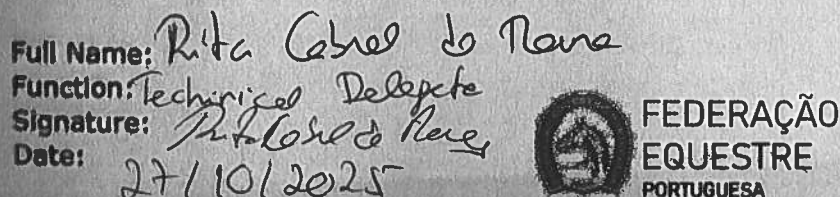 Full Name: Rita Cabral do
Function: Technical Delegate
Signature: Rita Cabral
Date:
27/10/2025
FEDERAÇÃO
EQUESTRE
PORTUGUESA